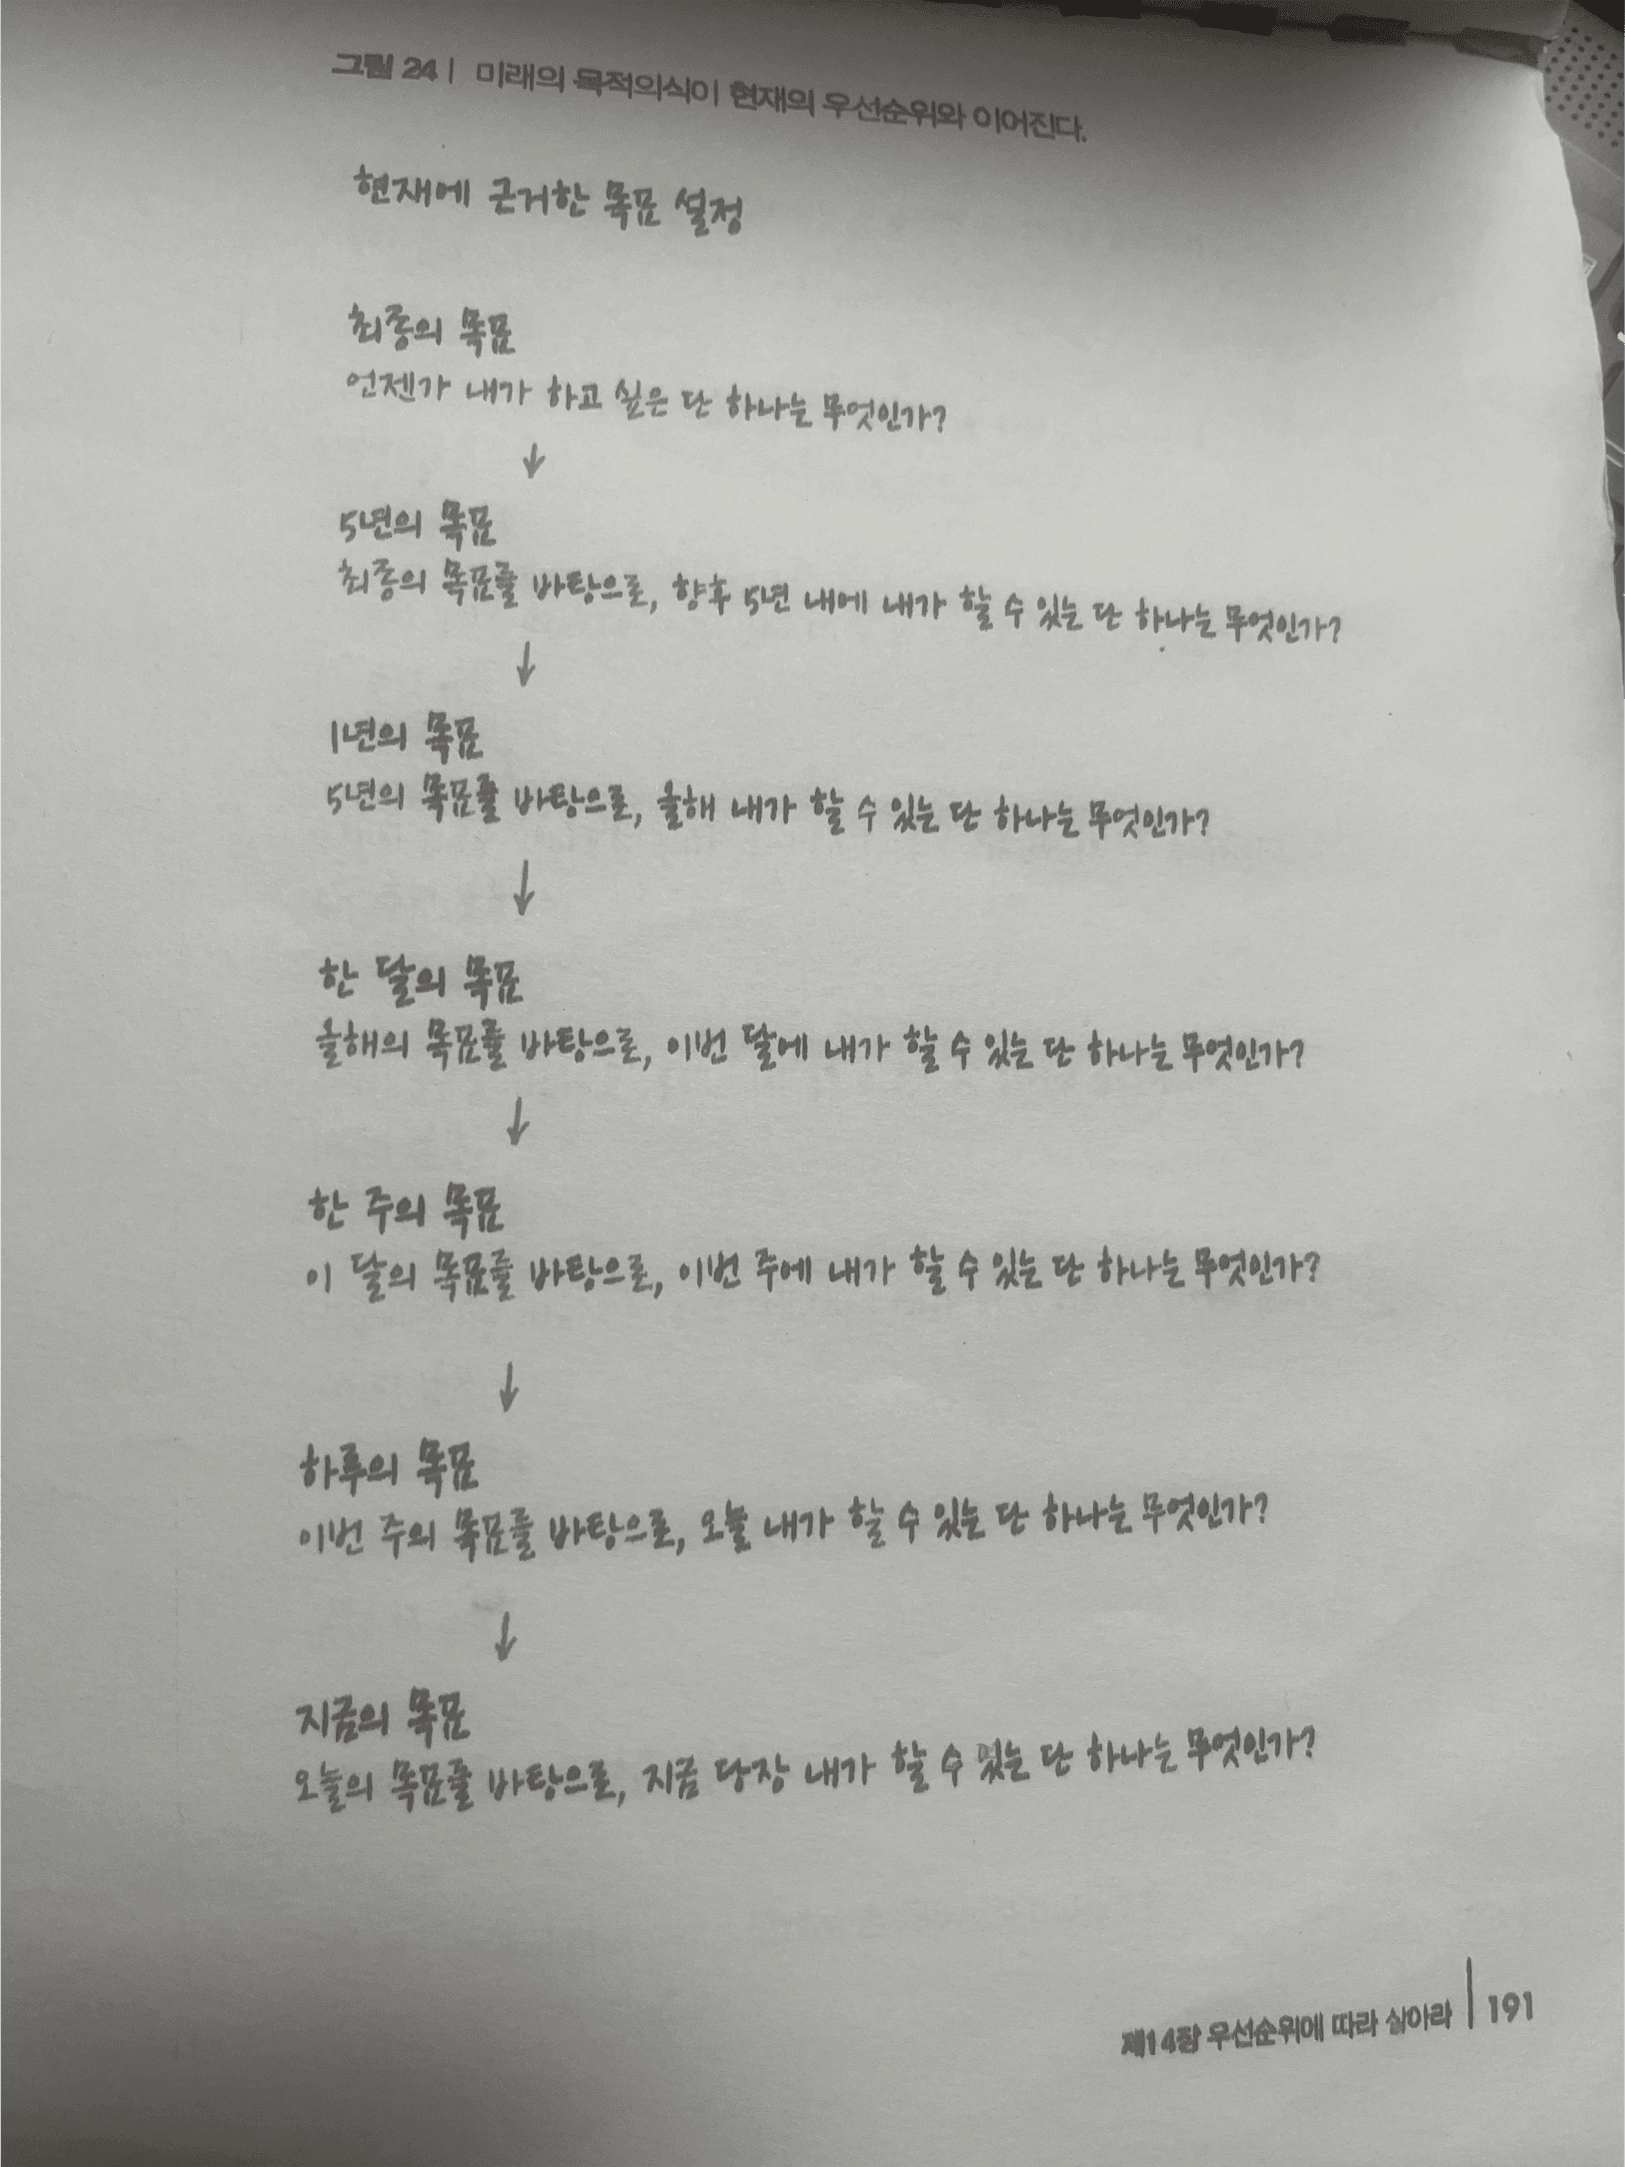 그림 24 | 미래의 목적의식이 현재의 우선순위와 이어진다.
현재에 근거한 목표 설정
최종의 목표
언젠가 내가 하고 싶은 단 하나는 무엇인가?
↓
5년의 목표
최종의 목표를 바탕으로, 향후 5년 내에 내가 할 수 있는 단 하나는 무엇인가?
↓
1년의 목표
5년의 목표를 바탕으로, 올해 내가 할 수 있는 단 하나는 무엇인가?
↓
한 달의 목표
올해의 목표를 바탕으로, 이번 달에 내가 할 수 있는 단 하나는 무엇인가?
↓
한 주의 목표
이 달의 목표를 바탕으로, 이번 주에 내가 할 수 있는 단 하나는 무엇인가?
↓
하루의 목표
이번 주의 목표를 바탕으로, 오늘 내가 할 수 있는 단 하나는 무엇인가?
↓
지금의 목표
오늘의 목표를 바탕으로, 지금 당장 내가 할 수 있는 단 하나는 무엇인가?
제14장 우선순위에 따라 살아라 | 191